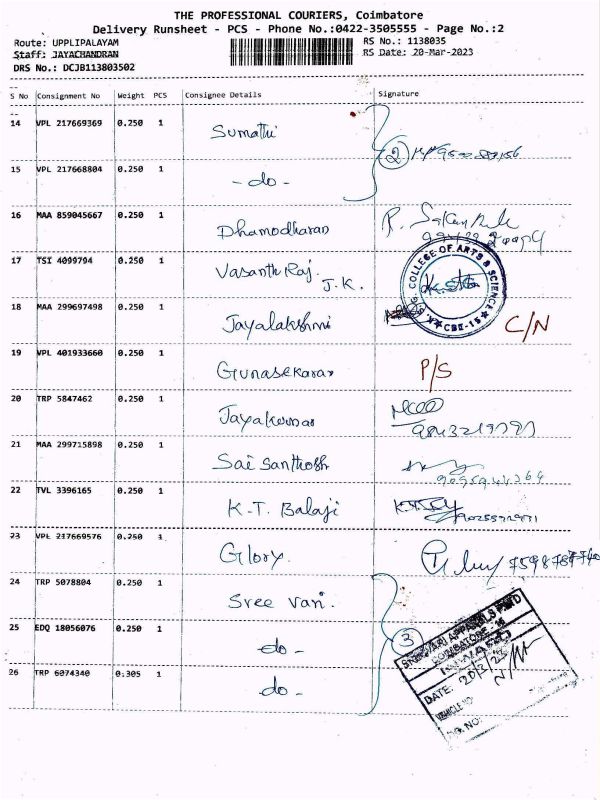 THE PROFESSIONAL COURIERS, Coimbatore
Delivery Runsheet - PCS - Phone No.:0422-3505555 - Page No.:2
Route: UPPLIPALAYAM RS No.: 1138035
Staff: JAYACHANDRAN RS Date: 20-Mar-2023
DRS No.: DCJB113803502
S No Consignment No Weight PCS Consignee Details Signature
14 VPL 217669369 0.250 1 Sumathi
2
15 VPL 217668804 0.250 1 - do -
16 MAA 859045667 0.250 1 Dhamodharan
17 TSI 4099794 0.250 1 Vasanth Raj. J.K.
COLLEGE OF ARTS & SCIENCE
CBE-15
18 MAA 299697498 0.250 1 Jayalakshmi C/N
19 VPL 401933660 0.250 1 Gunasekaran P/S
20 TRP 5847462 0.250 1 Jayakumar
21 MAA 299715898 0.250 1 Sai Santhosh
22 TVL 3396165 0.250 1 K.T. Balaji
23 VPL 217669576 0.250 1 Glory.
24 TRP 5078804 0.250 1 Sree Vari.
25 EDQ 18056076 0.250 1 - do - 3
26 TRP 6074340 0.305 1 - do -
COIMBATORE
INWARD
DATE: 20/3/23
VEHICLE NO: